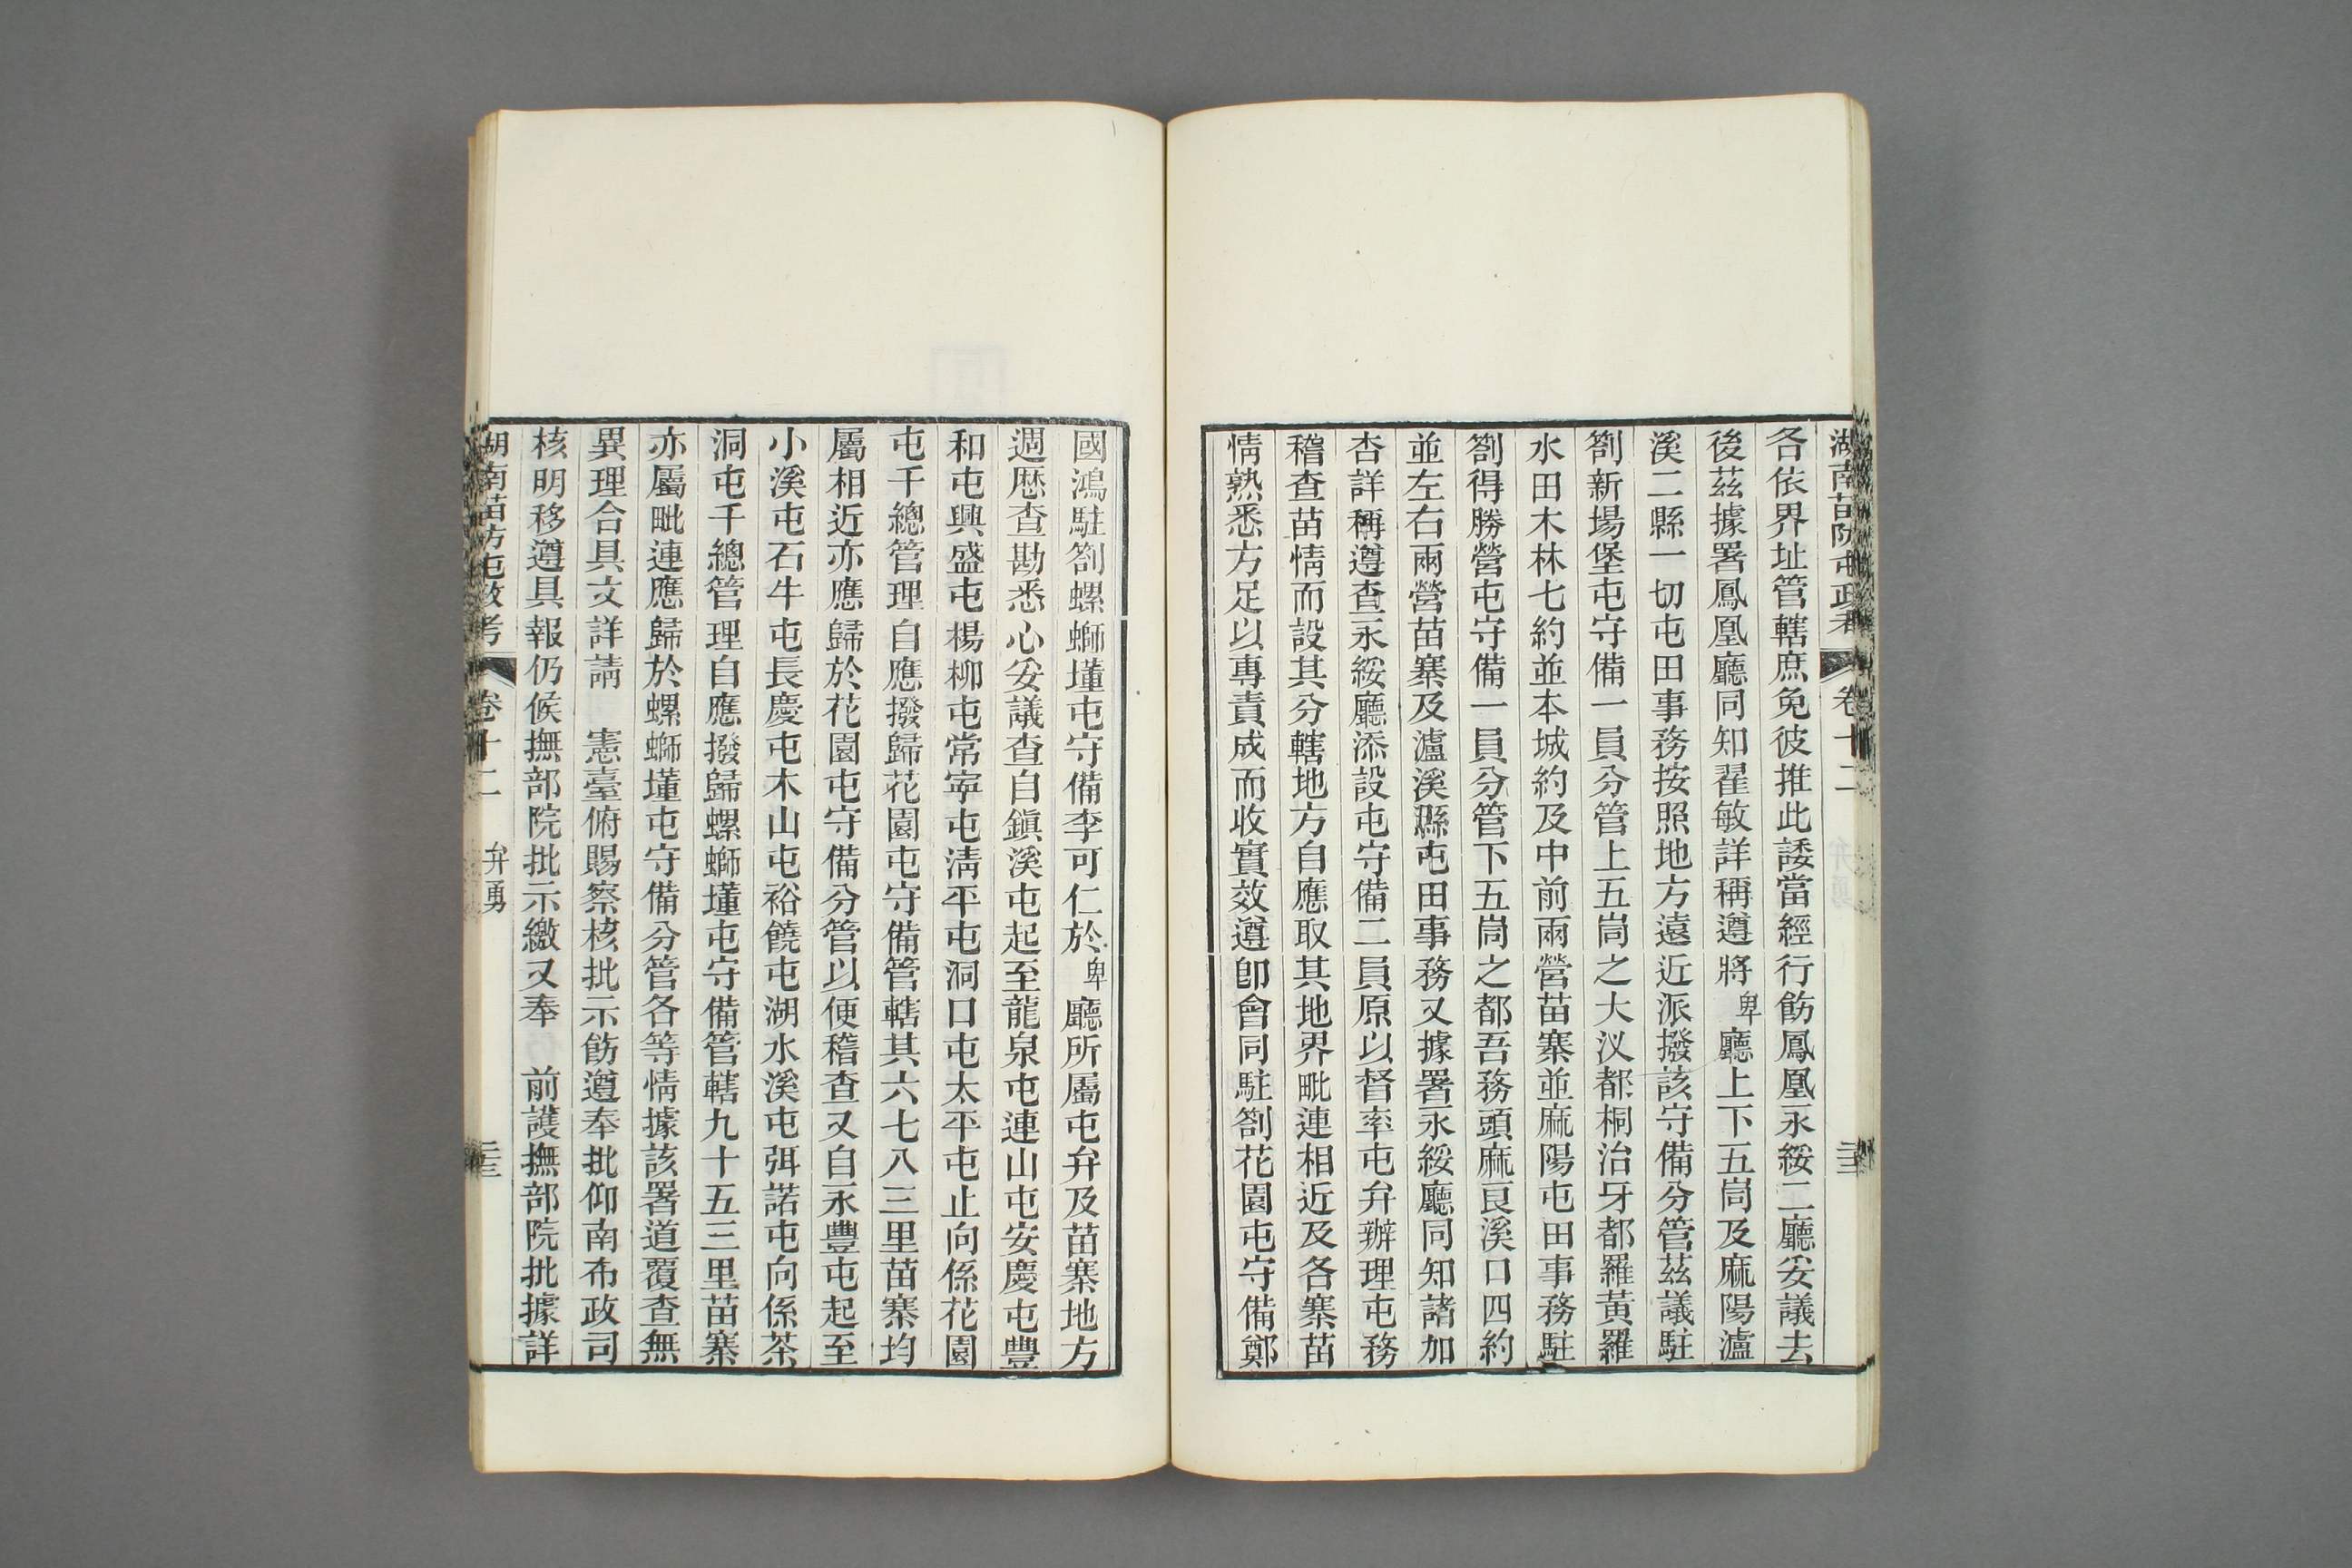 湖南苗防屯政考 卷十二
各依界址管轄庶免彼推此諉當經行飭鳳凰永綏二廳妥議去
後茲據署鳳凰廳同知翟敏詳稱遵將卑廳上下五峝及麻陽瀘
溪二縣一切屯田事務按照地方遠近派撥該守備分管茲議駐
劄新場堡屯守備一員分管上五峝之大汊都桐治牙都羅黃羅
水田木林七約並本城約及中前兩營苗寨並麻陽屯田事務駐
劄得勝營屯守備一員分管下五峝之都吾務頭麻良溪口四約
並左右兩營苗寨及瀘溪縣屯田事務又據署永綏廳同知諸加
杏詳稱遵查永綏廳添設屯守備二員原以督率屯弁辦理屯務
稽查苗情而設其分轄地方自應取其地界毗連相近及各寨苗
情熟悉方足以專責成而收實效遵卽會同駐劄花園屯守備鄭
國鴻駐劄螺螄墐屯守備李可仁於卑廳所屬屯弁及苗寨地方
週歷查勘悉心妥議查自鎮溪屯起至龍泉屯連山屯安慶屯豐
和屯興盛屯楊柳屯常寧屯淸平屯洞口屯太平屯止向係花園
屯千總管理自應撥歸花園屯守備管轄其六七八三里苗寨均
屬相近亦應歸於花園屯守備分管以便稽查又自永豐屯起至
小溪屯石牛屯長慶屯木山屯裕饒屯湖水溪屯弭諾屯向係茶
洞屯千總管理自應撥歸螺螄墐屯守備管轄九十五三里苗寨
亦屬毗連應歸於螺螄墐屯守備分管各等情據該署道覆查無
異理合具文詳請 憲臺俯賜察核批示飭遵奉批仰南布政司
核明移遵具報仍候撫部院批示繳又奉 前護撫部院批據詳
湖南苗防屯政考 卷十二 弁勇 二十三